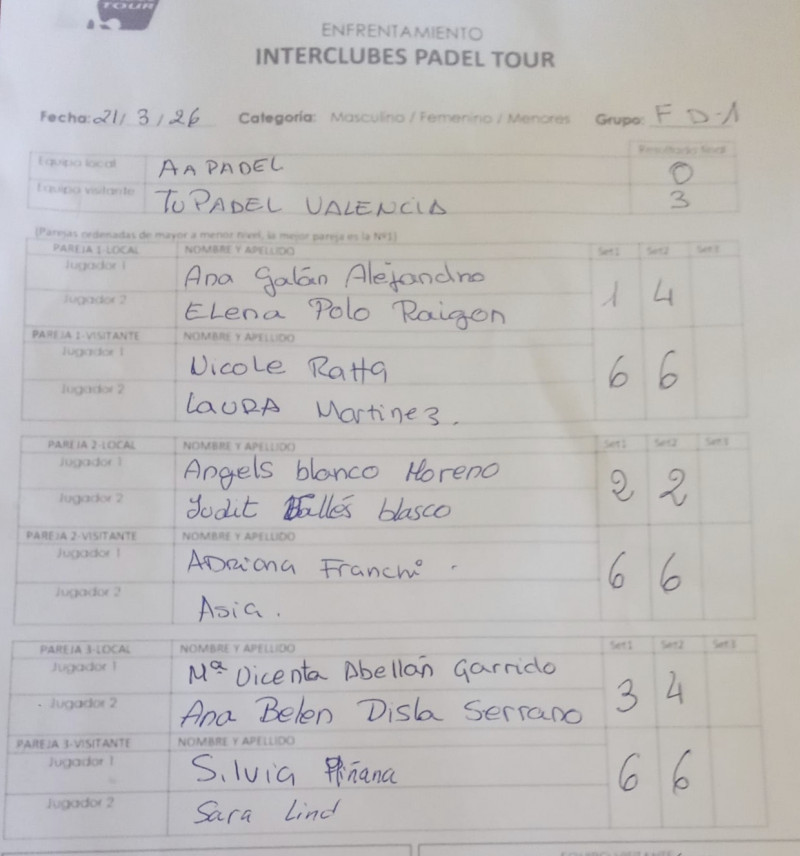 TOUR
ENFRENTAMIENTO
INTERCLUBES PADEL TOUR
Fecha: 21/3/26 Categoría: Masculino / Femenino / Menores Grupo: F D-1
Resultado final
Equipo local AA PADEL 0
Equipo visitante TuPADEL VALENCIA 3
(Parejas ordenadas de mayor a menor nivel, la mejor pareja es la Nº1)
PAREJA 1-LOCAL NOMBRE Y APELLIDO Set1 Set2 Set3
Jugador 1 Ana Galán Alejandro
1 4
Jugador 2 ELena Polo Raigon
PAREJA 1-VISITANTE NOMBRE Y APELLIDO
Jugador 1 Nicole Ratta
6 6
Jugador 2 LAURA Martinez.
PAREJA 2-LOCAL NOMBRE Y APELLIDO Set1 Set2 Set3
Jugador 1 Angels blanco Moreno
2 2
Jugador 2 Judit Vallés blasco
PAREJA 2-VISITANTE NOMBRE Y APELLIDO
Jugador 1 ADRiana Franchi.
6 6
Jugador 2 Asia.
PAREJA 3-LOCAL NOMBRE Y APELLIDO Set1 Set2 Set3
Jugador 1 Mª Vicenta Abellán Garrido
3 4
Jugador 2 Ana Belen Disla Serrano
PAREJA 3-VISITANTE NOMBRE Y APELLIDO
Jugador 1 Silvia Piñana
6 6
Jugador 2 Sara Lind